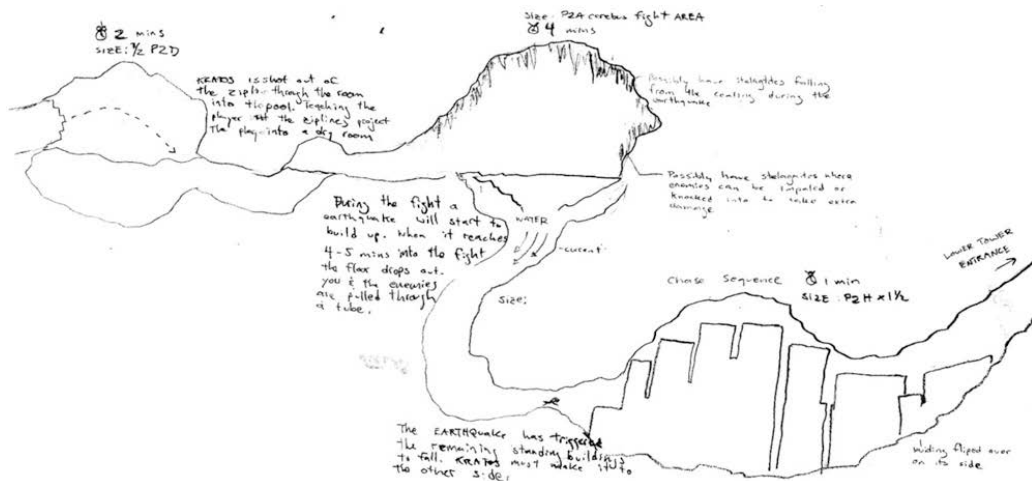 2 mins
SIZE: 1/2 P2D
KRATOS is shot out of
the zipline through the room
into the pool. Teaching the
player that the ziplines project
the player into a dry room
size: P2A cerebus fight AREA
4 mins
Possibly have stelagtites falling
from the ceiling during the
earthquake
Possibly have stelagmites where
enemies can be impaled or
knocked into to take extra
damage
During the fight a
earthquake will start to
build up. When it reaches
4-5 mins into the fight
the floor drops out.
you & the enemies
are pulled through
a tube.
WATER
current
SIZE:
Chase Sequence
1 min
SIZE: P2H x 1 1/2
LOWER TOWER
ENTRANCE
The EARTHquake has triggered
the remaining standing buildings
to fall. KRATOS must make it to
the other side.
fliped over
on its side